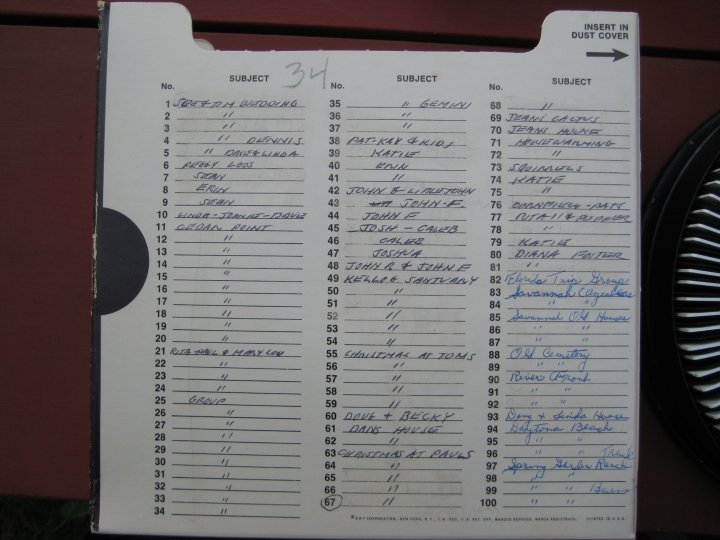 INSERT IN
DUST COVER
34
No. SUBJECT
1 SUE & TIM WEDDING
2 "
3 "
4 " DENNIS
5 " DAVE & LINDA
6 PEGGY LOOS
7 SEAN
8 ERIN
9 SEAN
10 LINDA - JOANNE - DAVE
11 CEDAR POINT
12 "
13 "
14 "
15 "
16 "
17 "
18 "
19 "
20 "
21 RITA PAUL & MARY LOU
22 "
23 "
24 "
25 GROUP
26 "
27 "
28 "
29 "
30 "
31 "
32 "
33 "
34 "
No. SUBJECT
35 " GEMINI
36 "
37 "
38 PAT-KAY & KIDS
39 KATIE
40 ERIN
41 "
42 JOHN & LITTLEJOHN
43 JOHN-F.
44 JOHN F
45 JOSH - CALEB
46 CALEB
47 JOSHUA
48 JOHN R & JOHN F
49 KELLOG SANTUARY
50 "
51 "
52 "
53 "
54 "
55 CHRISTMAS AT TOMS
56 "
57 "
58 "
59 "
60 DOUG & BECKY
61 DANS HOUSE
62 "
63 CHRISTMAS AT PAULS
64 "
65 "
66 "
67 "
No. SUBJECT
68 "
69 JEANS CACTUS
70 JEANS HOUSE
71 HOUSEWARMING
72 "
73 SQUIRRELS
74 KATIE
75 "
76 CORNFIELD - PATS
77 RITA
78 "
79 KATIE
80 DIANA FOSTER
81 "
82 Florida Trip Group
83 Savannah
84 " "
85 Savannah Old Houses
86 " "
87 " "
88 Old Cemetery
89 " "
90 River Front
91 " "
92 " "
93 Doug & Linda House
94 Daytona Beach
95 " "
96 " "
97 Spring Garden Ranch
98 " "
99 " "
100 " "
© GAF CORPORATION, NEW YORK, N.Y., T.M. REG. U.S. PAT. OFF. MARCAS REGISTRADA. PRINTED IN U.S.A.